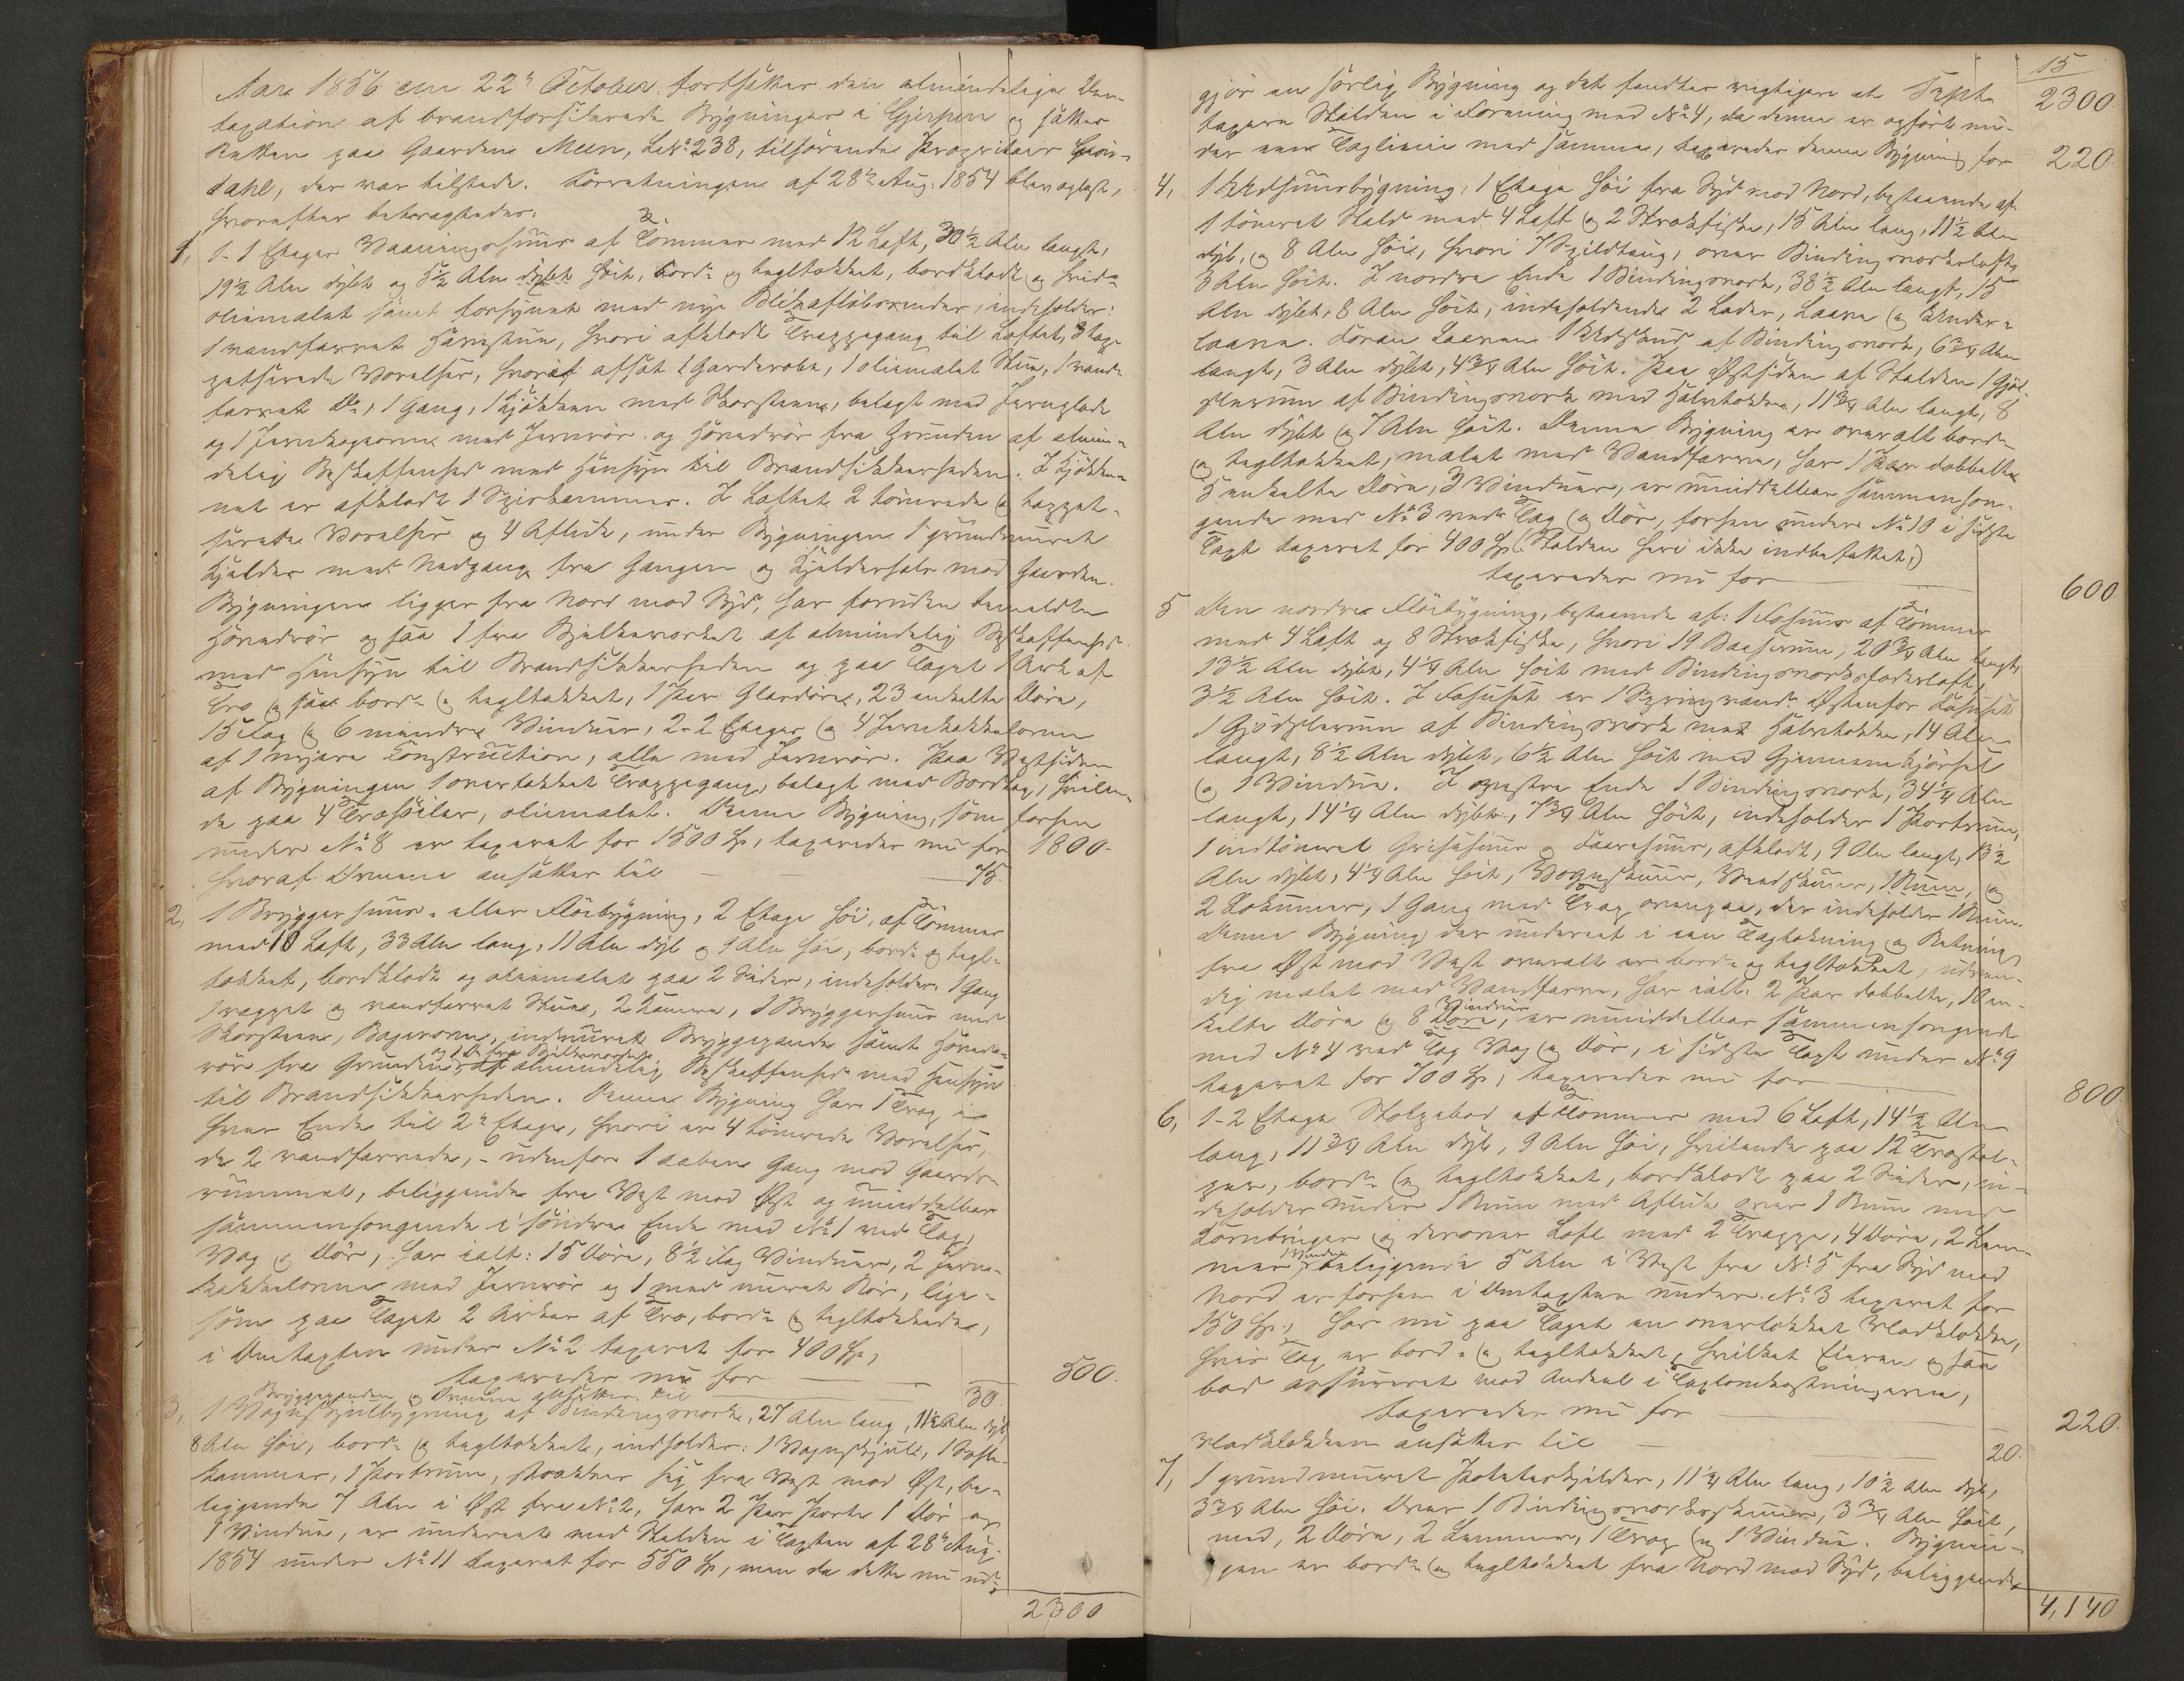 Aar 1856 den 22de October fortsattes den almindelige Om-
taxation af brandforsikrede Bygninger i Gjerpen og sattes
Retten paa Gaarden Meen, LNo 238, tilhørende Proprietair
dahl, der var tilstede. Forretningen af 28de Aug: 1854 blev oplæst,
hvorefter betragtedes.
1, 1-1 Etages Vaaningshuus af Tømmer med 12 Laft, 30½ Alen langt,
19½ Alen dybt og 5½ Alen høit, bord- og tegltækket, bordklædt og hvid-
oliemalet samt forsynet med nye Blikafløbsrender, indeholder:
1 vandfarvet Havestue, hvori afklædt Trappegang til Loftet, 3 tap-
petserede Værelser, hvoraf afsat 1 Garderobe, 1 oliemalet Stue, 1 vand-
farvet Do, 1 Gang, 1 Kjøkken med Skorsteen, belagt med Jernplade
og 1 Jernbagerovn med Jernrør og Hovedrør fra Grunden af almin-
delig Beskaffenhed med Hensyn til Brandsikkerheden. I Kjøkke-
net er afklædt 1 Spiskammer. I Loftet 2 tømrede og tappet-
serede Værelser og 4 Aflukk, under Bygningen 1 grundmuret
Kjelder med Nedgang fra Gangen og Kjelderhals mod Gaarden.
Bygningen ligger fra Nord mod Syd, har foruden bemeldte
Hovedrør ogsaa 1 fra Bjelkeværket af almindelig Beskaffenhed
med Hensyn til Brandsikkerheden og paa Taget 1 Ark af
Træ ogsaa bord- og tegltækket, 1 Par Glasdøre, 23 enkelte Døre,
15 Fag og 6 mindre Vinduer, 2-2 Etages og 4 Jernkakkelovne
af nyere Construction, alle med Jernrør. Paa Vestsiden
af Bygningen 1 overtækket Trappegang, belagt med Bordtag, hvilen-
de paa 4 Træpiler, oliemalet. Denne Bygning, som forhen
under No 8 er taxeret for 1500 Sp, taxeredes nu for 1800-
hvoraf Ovnene ansættes til 75.
2, 1 Bryggerhuus- eller Fløibygning, 2 Etage høi, af Tømmer
med 10 Laft, 33 Alen lang, 11 Alen dyb og 9 Alen høi, bord- og tegl-
tækket, bordklædt og oliemalet paa 2 Sider, indeholder 1 Gang
1 rappet og vandfarvet Stue, 2 Kamere, 1 Bryggerhuus med
Skorsteen, Bagerovn, indmuret Bryggepande samt Hoved-
rør fra Grunden og 1 Do fra Bjelkeværket, af almindelig Beskaffenhed med Hensyn
til Brandsikkerheden. Denne Bygning har 1 Trap i
hver Ende til 2de Etage, hvori er 4 tømrede Værelser,
de 2 vandfarvede, - udenfor 1 aaben Gang mod Gaards-
rummet, beliggende fra Vest mod Øst og umiddelbar
sammenhængende i søndre Ende med No 1 ved Tag,
Væg og Dør, har ialt: 15 Døre, 8½ Fag Vinduer, 2 Jern-
kakkelovne med Jernrør og 1 med muret Rør, lige-
som paa Taget 2 Arker af Træ, bord- og tegltækkede,
i Omtaxten under No 2 taxeret for 400 Sp,
taxeredes nu for 500.
Bryggepanden og Ovnene ansættes til 30.
3, 1 Vognskjulbygning af Bindingsværk, 27 Alen lang, 11½ Alen dyb,
8 Alen høi, bord- og tegltækket, indeholder: 1 Vognskjul, 1
kammer, 1 Portrum, strækker sig fra Vest mod Øst, be-
liggende 7 Alen i Øst fra No 2, har 2 Par Porte 1 Dør og
1 Vindue, er undereet med Stalden i Taxten af 28de Aug:
1854 under No 11 taxeret for 550 Sp, men da dette nu ud-
2300
15
gjør en særlig Bygning og det fandtes rigtigere at Transpt 2300.
taxere Stalden i Forening med No 4, da denne er opført un-
der een Taglinie med samme, taxeredes denne Bygning for 220.
4, 1 Udhuusbygning, 1 Etage høi fra Syd mod Nord, bestaaende af
1 tømret Stald med 4 Laft og 2 Strækfiske, 15 Alen lang, 11½ Alen
dyb, og 8 Alen høi, hvori 7 Spildtoug, over Bindingsværksloft,
3 Alen høit. I nordre Ende 1 Bindingsværk, 38½ Alen langt, 15
Alen dybt, 8 Alen høit, indeholdende 2 Lader, Laave og Under-
laave. Foran Laaven 1 Udskud af Bindingsværk, 6¾ Alen
langt, 3 Alen dybt, 4¾ Alen høit. Paa Østsiden af Stalden 1 Gjød-
selsrum af Bindingsværk med Halvtække, 11¾ Alen langt, 8
Alen dybt og 7 Alen høit. Denne Bygning er overalt bord-
og tegltækket, malet med Vandfarve, har 1 Par dobbelte
5 enkelte Døre, 3 Vinduer, er umiddelbar sammenhæn-
gende med No 3 ved Tag og Dør, forhen under No 10 i sidste
Taxt taxeret for 400 Sp (Stalden heri ikke indbefattet;)
taxeredes nu for 600
5 Den nordre Fløibygning, bestaaende af: 1 Fæhuus af Tømmer
med 4 Laft og 8 Strækfiske, hvori 19 Baaserum, 20¾ Alen langt,
13½ Alen dybt, 4¼ Alen høit med Bindingsværksfoderloft,
3½ Alen høit. I Fæhuset er 1 Springvand. Østenfor Fæhuset
1 Gjødselsrum af Bindingsværk med Halvtække, 14 Alen
langt, 8½ Alen dybt, 6½ Alen høit med Gjennemkjørsel
og 1 Vindue. I vestre Ende 1 Bindingsværk, 34¼ Alen
langt, 14¼ Alen dybt, 7¾ Alen høit, indeholder 1 Portrum,
1 indtømret Grisehuus og Faarehuus, afklædt, 9 Alen langt, 13½
Alen dybt, 4¼ Alen høit, Vognskuur, Vedskuur, 1 Ruum, og
2 Lokummer, 1 Gang med Trap ovenpaa, der indeholder 1 Ruum.
Denne Bygning der undereet i een Tagtækning og Retning
fra Øst mod Vest overalt er bord- og tegltækket, udven-
dig malet med Vandfarve, har ialt: 2 Par dobbelte, 10 en-
kelte Døre og 8 Vinduer, er umiddelbar sammenhængende
med No 4 ved Tag Væg og Dør, i sidste Taxt under No 9
taxeret for 700 Sp, taxeredes nu for 800
6, 1-2 Etage Stolpebod af Tømmer med 6 Laft, 14½ Alen
lang, 11¾ Alen dyb, 9 Alen høi, hvilende paa 12 Træstol-
per, bord- og tegltækket, bordklædt paa 2 Sider, in-
deholder under 1 Rum med Aflukk over 1 Rum med
Kornbinger og derover Loft med 2 Trappe, 4 Døre, 2 Lem-
mer, 1 Vindue, beliggende 5 Alen i Vest fra No 5 fra Syd mod
Nord er forhen i Omtaxten under No 3 taxeret for
150 Sp, har nu paa Taget en overtækket Madklokke,
hvis Tag er bord- og tegltækket, hvilket Eieren ogsaa
bad assureret mod Andeel i Taxtomkostningerne,
taxeredes nu for 220.
Madklokken ansættes til 20.
7, 1 grundmuret Potetskjelder, 11¼ Alen lang, 10½ Alen dyb,
3¾ Alen høi. Over 1 Bindingsværksskuur, 3¾ Alen høit,
med, 2 Døre, 2 Lemmer, 1 Trap og 1 Vindue. Bygnin-
gen er bord- og tegltækket fra Nord mod Syd, beliggende
4,140